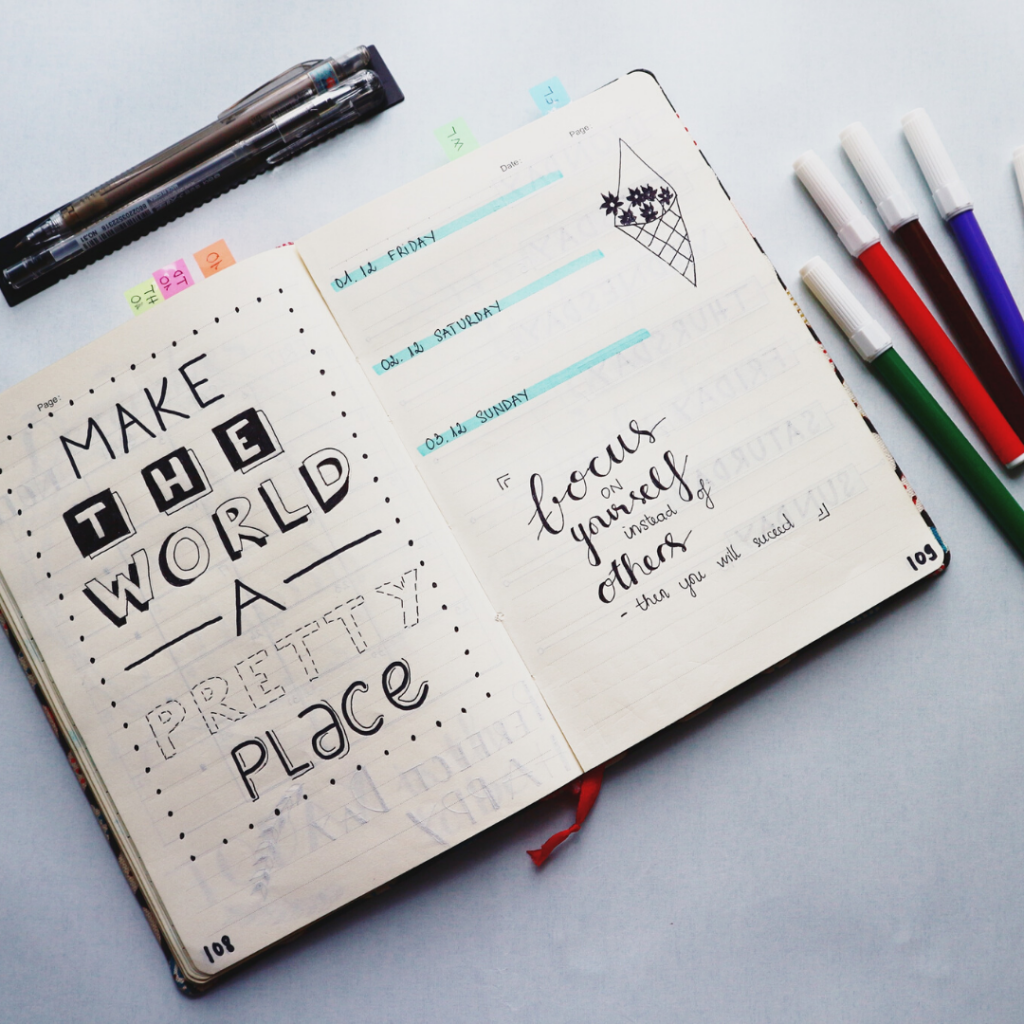 Page:
MAKE
THE
WORLD
A
PRETTY
PLace
108
Date:
Page
01.12 FRIDAY
02.12 SATURDAY
03.12 SUNDAY
focus
ON
yourself
instead of
others
- then you will succed
109